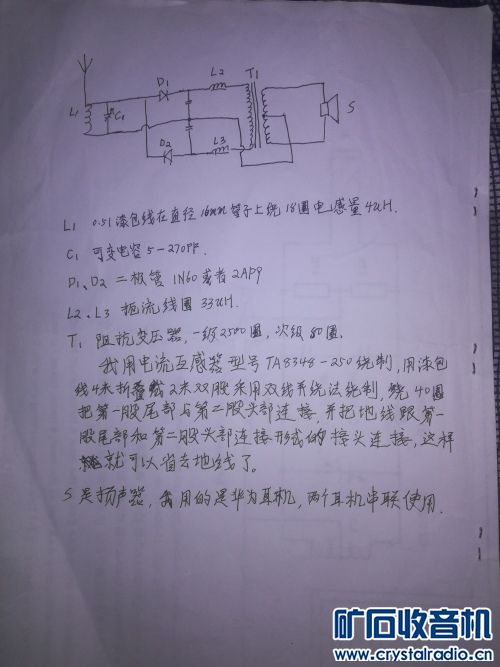 D1
L2
T1
L1
C1
S
D2
L3
L1 0.51漆包线在直径16mm管子上绕18圈电感量4uH.
C1 可变电容5-270PF.
D1、D2 二极管1N60或者2AP9
L2、L3 扼流线圈33uH.
T1 阻抗变压器,一级2500圈,次级80圈.
我用电流互感器型号TA8348-250绕制,用漆包
线4米折叠成2米双股采用双线并绕法绕制,绕40圈
把第一股尾部与第二股头部连接,并把地线跟第一
股尾部和第二股头部连接形式的接头连接,这样
就可以省去地线了。
S是扬声器,我用的是华为耳机,两个耳机串联使用.
矿石收音机
www.crystalradio.cn